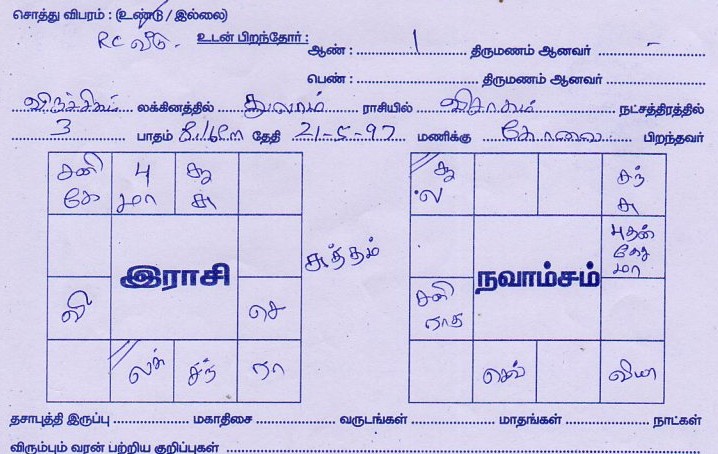 சொத்து விபரம் : (உண்டு / இல்லை)
RC வீடு. உடன் பிறந்தோர் : ஆண் : 1 திருமணம் ஆனவர் –
பெண் : திருமணம் ஆனவர்
விருச்சிகம் லக்கினத்தில் துலாம் ராசியில் விசாகம் நட்சத்திரத்தில்
3 பாதம் தேதி 21-5-97 மணிக்கு பிறந்தவர்
சனி பு சூ சூ சந்
கே மா சு ல சு
சுத்தம் புதன்
இராசி நவாம்சம் கேது
மா
வி செ சனி
ராகு
லக் சந் ரா செவ் வியா
தசாபுத்தி இருப்பு மகாதிசை வருடங்கள் மாதங்கள் நாட்கள்
விரும்பும் வரன் பற்றிய குறிப்புகள்